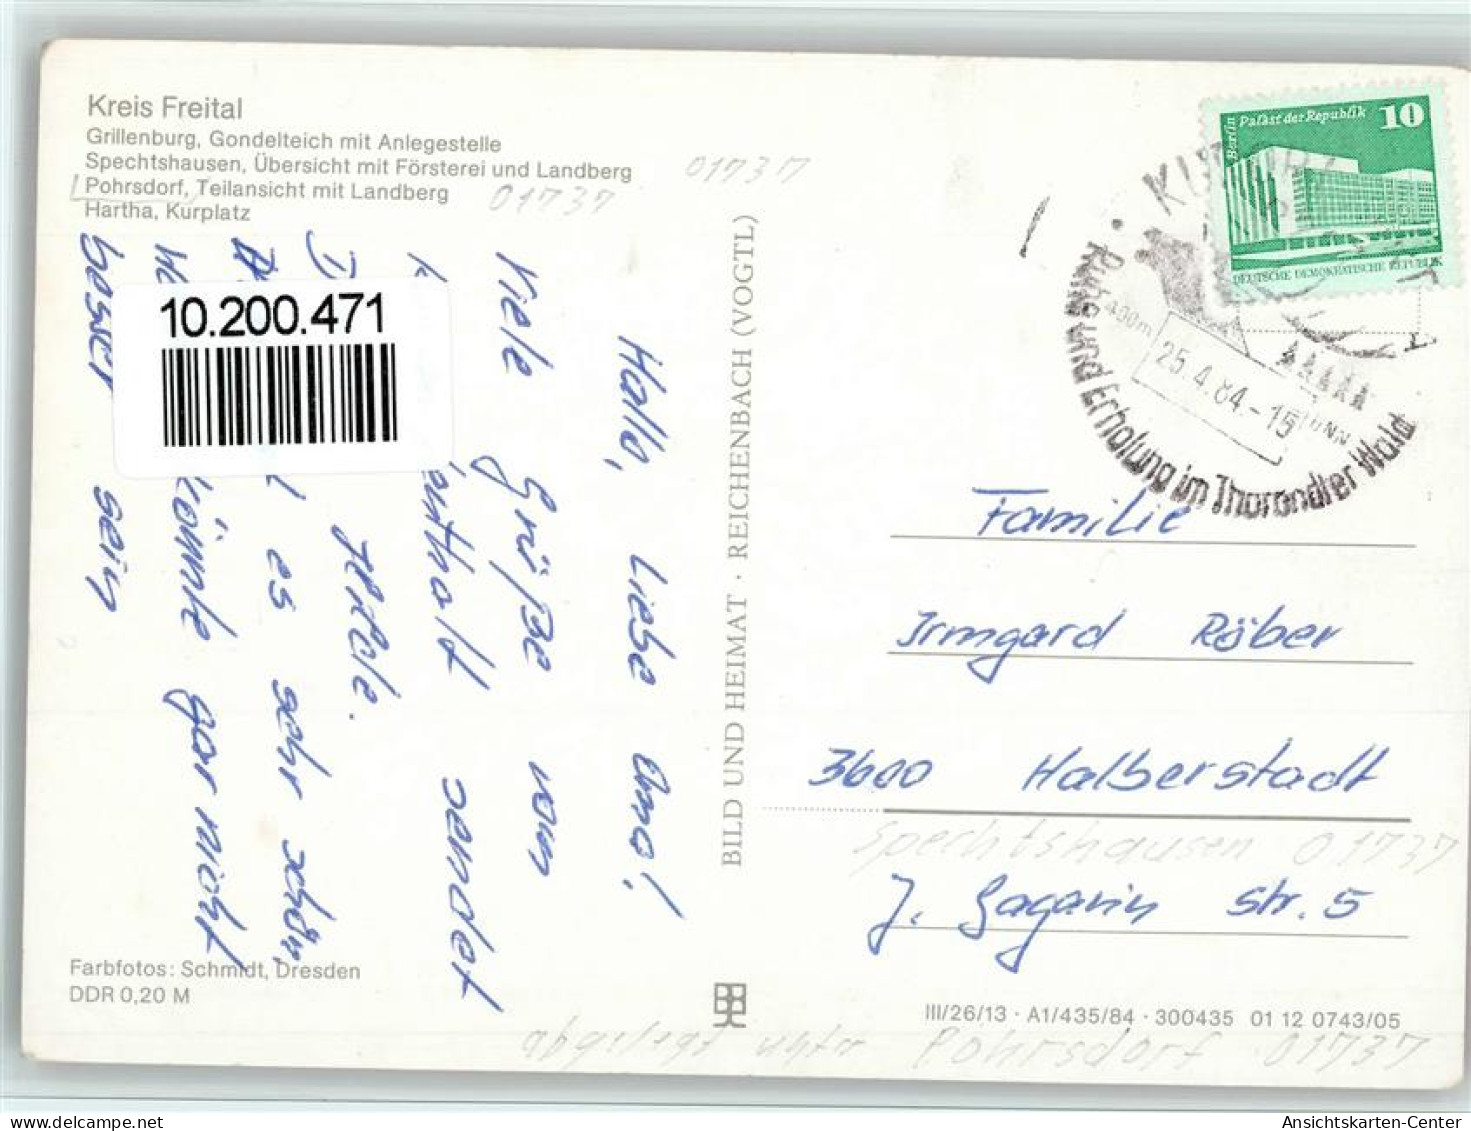 Kreis Freital
Grillenburg, Gondelteich mit Anlegestelle
Spechtshausen, Übersicht mit Försterei und Landberg
Pohrsdorf, Teilansicht mit Landberg
Hartha, Kurplatz
01737
01737
10.200.471
Hallo, liebe Oma!
Viele Grüße vom
enthalt sendet
es sehr schön,
könnte gar nicht
besser sein
BILD UND HEIMAT · REICHENBACH (VOGTL)
Berlin Palast der Republik 10
DEUTSCHE DEMOKRATISCHE REPUBLIK
Ruhe und Erholung im Tharandter Wald
400m
25.4.84-15
Familie
Irmgard Röber
3600 Halberstadt
Spechtshausen 01737
J. Gagarin Str. 5
Farbfotos: Schmidt, Dresden
DDR 0,20 M
III/26/13 · A1/435/84 · 300435 01 12 0743/05
abgelegt unter Pohrsdorf 01737
Ansichtskarten-Center